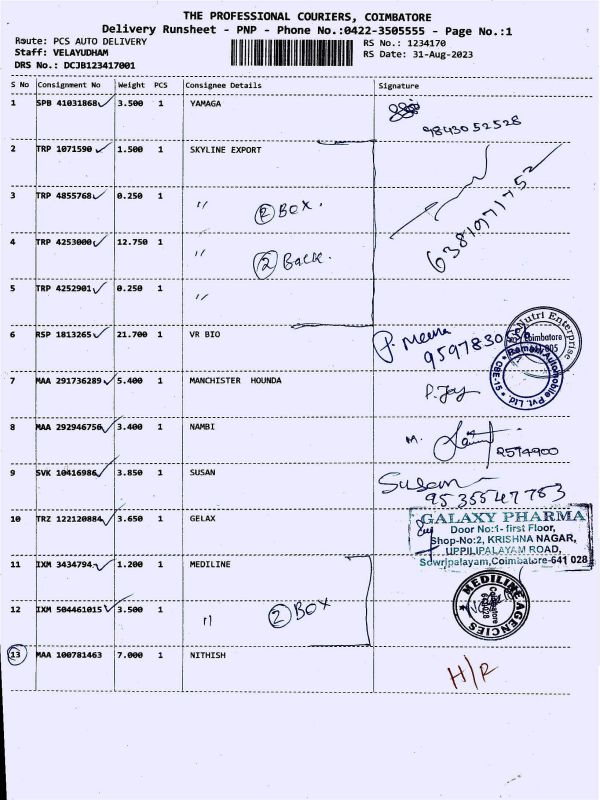 THE PROFESSIONAL COURIERS, COIMBATORE
Delivery Runsheet - PNP - Phone No.:0422-3505555 - Page No.:1
Route: PCS AUTO DELIVERY
RS No.: 1234170
Staff: VELAYUDHAM
RS Date: 31-Aug-2023
DRS No.: DCJB123417001
S No Consignment No Weight PCS Consignee Details Signature
1 SPB 41031868 3.500 1 YAMAGA
9843052528
2 TRP 1071590 1.500 1 SKYLINE EXPORT
3 TRP 4855768 0.250 1 " ② Box.
6381971752
4 TRP 4253000 12.750 1 " ② Back.
5 TRP 4252901 0.250 1 "
6 RSP 1813265 21.700 1 VR BIO P. Meena
Nutri Enterprise
Coimbatore
7 MAA 291736289 5.400 1 MANCHISTER HOUNDA P. Joy
Automobile Pvt. Ltd. CBE-15
8 MAA 292946756 3.400 1 NAMBI M.
9 SVK 10416986 3.850 1 SUSAN Susan
9535547763
10 TRZ 122120884 3.650 1 GELAX
GALAXY PHARMA
Door No:1- first Floor,
Shop-No:2, KRISHNA NAGAR,
UPPILIPALAYAM ROAD,
Sowripalayam,Coimbatore-641 028
11 IXM 3434794 1.200 1 MEDILINE
MEDILINE AGENCIES
Coimbatore
12 IXM 504461015 3.500 1 " ② Box
13 MAA 100781463 7.000 1 NITHISH H/R